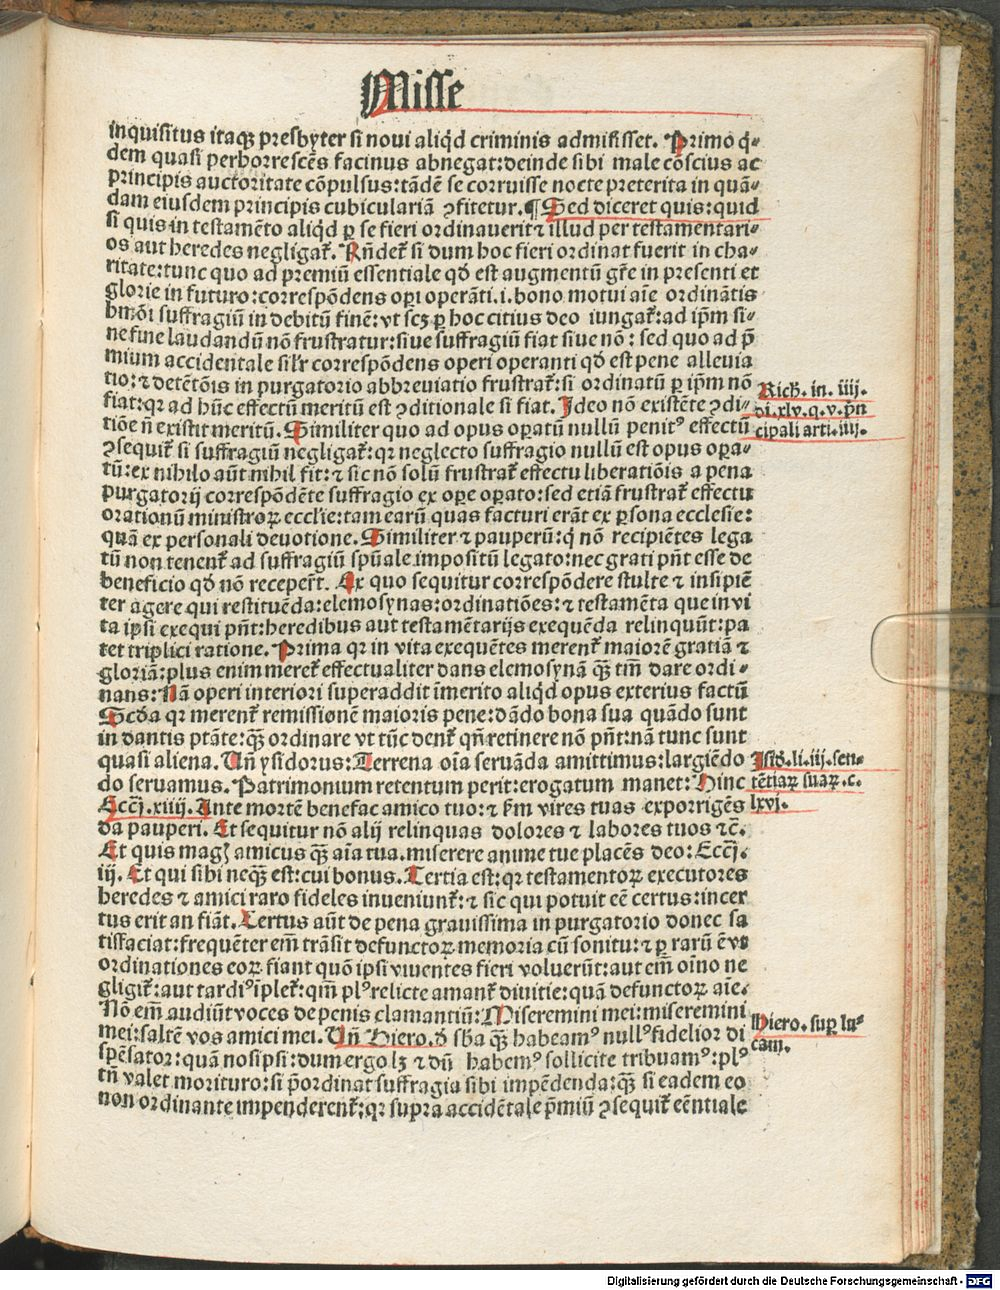 Misse
inquisitus itaqꝫ presbyter si noui aliqd criminis admisisset. Primo q̄⸗
dem quasi perhorrescēs facinus abnegat:deinde sibi male cōscius ac
principis auctoritate cōpulsus:tādē se corruisse nocte preterita in quā⸗
dam eiusdem principis cubiculariā ꝯfitetur. ¶ Sed diceret quis:quid
si quis in testamēto aliqd ꝑ se fieri ordinauerit ⁊ illud per testamentari⸗
os aut heredes negligat᷑. Rn̄det᷑ si dum hoc fieri ordinat fuerit in cha⸗
ritate:tunc quo ad premiū essentiale qd̄ est augmentū gr̄e in presenti et
glorie in futuro:correspōdens oꝑi operāti.i.bono motui aīe ordināt​is
hm̄ōi suffragiū in debitū finē:vt scꝫ ꝑ hoc citius deo iungat᷑:ad ip̄m si⸗
ne fine laudandū nō frustratur:siue suffragiū fiat siue nō: sed quo ad p̄
mium accidentale sil̓r correspōdens operi operanti qd̄ est pene alleuia
tio:⁊ detētōis in purgatorio abbreuiatio frustrat᷑:si ordinatū ꝑ ip̄m nō
fiat:qꝛ ad hūc effectū meritū est ꝯditionale si fiat. Ideo nō existēte ꝯdi⸗
tiōe n̄ existit meritū. Similiter quo ad opus oꝑatū nullū penitꝰ effectū
ꝯsequit᷑ si suffragiū negligat᷑:qꝛ neglecto suffragio nullū est opus oꝑa⸗
tū:ex nihilo aūt nihil fit:⁊ sic nō solū frustrat᷑ effectu liberatiōis a pena
purgatorij correspōdēte suffragio ex oꝑe oꝑato:sed etiā frustrat᷑ effectu
orationū ministroꝝ eccl̓ie:tam earū quas facturi erāt ex ꝑsona ecclesie:
quā ex personali deuotione. Similiter ⁊ pauperū:q̇ nō recipiētes lega
tū non tenent᷑ ad suffragiū spūale impositū legato:nec grati pn̄t esse de
beneficio qd̄ nō receper̄t. Ex quo sequitur correspōdere stulte ⁊ insipiē
ter agere qui restituēda:elemosynas:ordinatiōes:⁊ testamēta que in vi
ta ipsi exequi pn̄t:heredibus aut testamētarijs exequēda relinquūt:pa
tet triplici ratione. Prima qꝛ in vita exequētes merent᷑ maiorē gratiā ⁊
gloriā:plus enim meret᷑ effectualiter dans elemosynā qꝫ̄ tm̄ dare ordi⸗
nans:Nā operi interiori superaddit īmerito aliqd opus exterius factū
Scd̄a qꝛ merent᷑ remissionē maioris pene:dādo bona sua quādo sunt
in dantis ptāte:qꝫ̄ ordinare vt tūc dent᷑ qn̄ retinere nō pn̄t:nā tunc sunt
quasi aliena. Vn̄ ysidorus:Terrena oīa seruāda amittimus:largiēdo
do seruamus. Patrimonium retentum perit:erogatum manet:Hinc
Ecci̓.xiiij. Ante mortē benefac amico tuo:⁊ ẜm vires tuas exporrigēs
da pauperi. Et sequitur nō alij relinquas dolores ⁊ labores tuos ⁊c̄.
Et quis magꝭ amicus qꝫ̄ aīa tua.miserere anime tue placēs deo:Ecci̓.
iij. Et qui sibi neqꝫ̄ est:cui bonus. Tertia est:qꝛ testamentoꝝ executores
heredes ⁊ amici raro fideles inueniunt᷑:⁊ sic qui potuit eē certus:incer
tus erit an fiāt. Certus aūt de pena grauissima in purgatorio donec sa
tisfaciat:frequēter em̄ trāsit defunctoꝝ memoria cū sonitu:⁊ ꝑ rarū ē vt
ordinationes eoꝝ fiant quō ipsi viuentes fieri voluerūt:aut em̄ oīno ne
gligit᷑:aut tardiꝰ īplet᷑:qm̄ plꝰ relicte amant᷑ diuitie:quā defunctoꝝ aīe.
Nō em̄ audiūt voces de penis clamantiū:Miseremini mei:miseremini
mei:saltē vos amici mei. Vn̄ Hiero.d̄ sb̄a qꝫ̄ habeamꝰ nullꝰ fidelior di
spēsator:quā nosipsi:dum ergo lꝫ ⁊ dū habemꝰ sollicite tribuamꝰ:plꝰ
tn̄ valet morituro:si p̄ordinat suffragia sibi impēdenda:qꝫ̄ si eadem eo
non ordinante impenderent᷑:qꝛ supra accidētale p̄miū ꝯsequit᷑ eēntiale
Rich. in. iiij.
di.xlv.q.v.pn̄
cipali arti.iiij.
Isid̄.li.iij.sen⸗
tētiaꝝ suaꝝ.c.
lxvj.
Hiero. suꝑ lu⸗
cam.
Digitalisierung gefördert durch die Deutsche Forschungsgemeinschaft - DFG